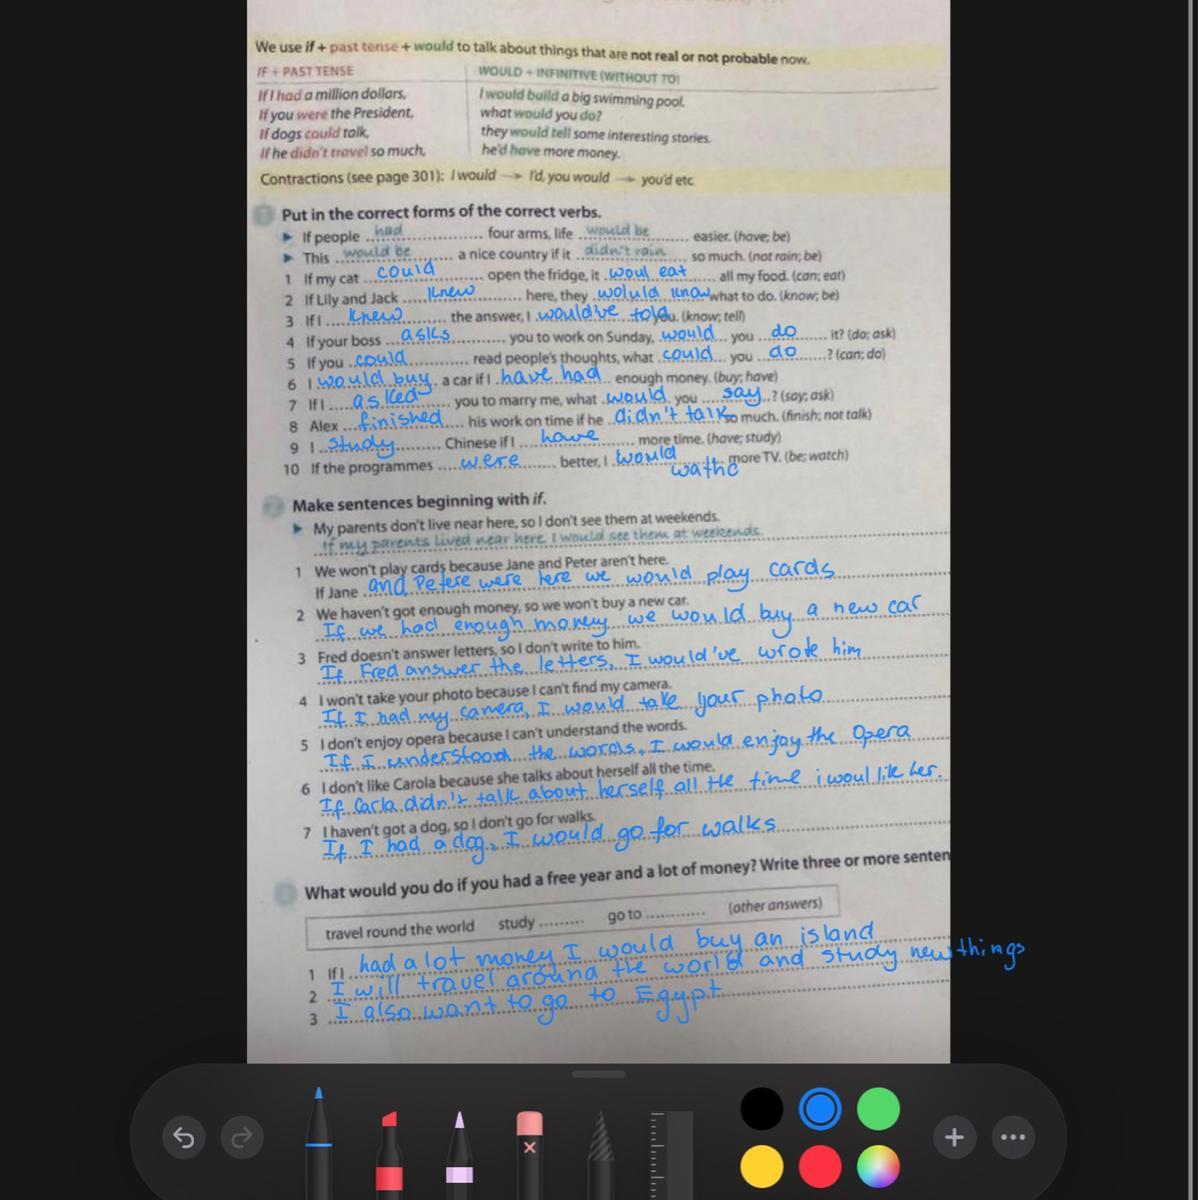 We use if + past tense + would to talk about things that are not real or not probable now.
IF + PAST TENSE WOULD + INFINITIVE (WITHOUT TO)
If I had a million dollars, I would build a big swimming pool.
If you were the President, what would you do?
If dogs could talk, they would tell some interesting stories.
If he didn't travel so much, he'd have more money.
Contractions (see page 301): I would → I'd, you would → you'd etc
Put in the correct forms of the correct verbs.
► If people had four arms, life would be easier. (have; be)
► This would be a nice country if it didn't rain so much. (not rain; be)
1 If my cat could open the fridge, it woul eat all my food. (can; eat)
2 If Lily and Jack knew here, they woluld know what to do. (know; be)
3 If I knew the answer, I would've told you. (know; tell)
4 If your boss asks you to work on Sunday, would you do it? (do; ask)
5 If you could read people's thoughts, what could you do ? (can; do)
6 I would buy a car if I have had enough money. (buy; have)
7 If I asked you to marry me, what would you say ? (say; ask)
8 Alex finished his work on time if he didn't talk so much. (finish; not talk)
9 I study Chinese if I have more time. (have; study)
10 If the programmes were better, I would wathc more TV. (be; watch)
Make sentences beginning with if.
► My parents don't live near here, so I don't see them at weekends.
If my parents lived near here, I would see them at weekends.
1 We won't play cards because Jane and Peter aren't here.
If Jane and Petere were here we would play cards
2 We haven't got enough money, so we won't buy a new car.
If we had enough money we would buy a new car
3 Fred doesn't answer letters, so I don't write to him.
If Fred answer the letters, I would've wrote him
4 I won't take your photo because I can't find my camera.
If I had my camera, I would take your photo
5 I don't enjoy opera because I can't understand the words.
If I understood the words, I would enjoy the Opera
6 I don't like Carola because she talks about herself all the time.
If Carla didn't talk about herself all the time i woul like her.
7 I haven't got a dog, so I don't go for walks.
If I had a dog, I would go for walks
What would you do if you had a free year and a lot of money? Write three or more senten
travel round the world study ......... go to ............ (other answers)
1 If I had a lot money I would buy an island
2 I will travel around the world and study new things
3 I also want to go to Egypt